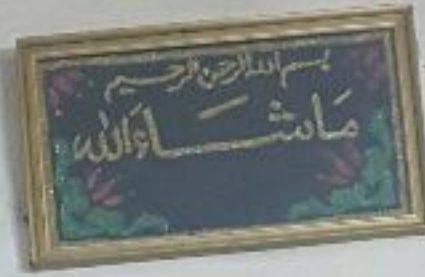 بسم الله الرحمن الرحيم
مَاشَاءَالله